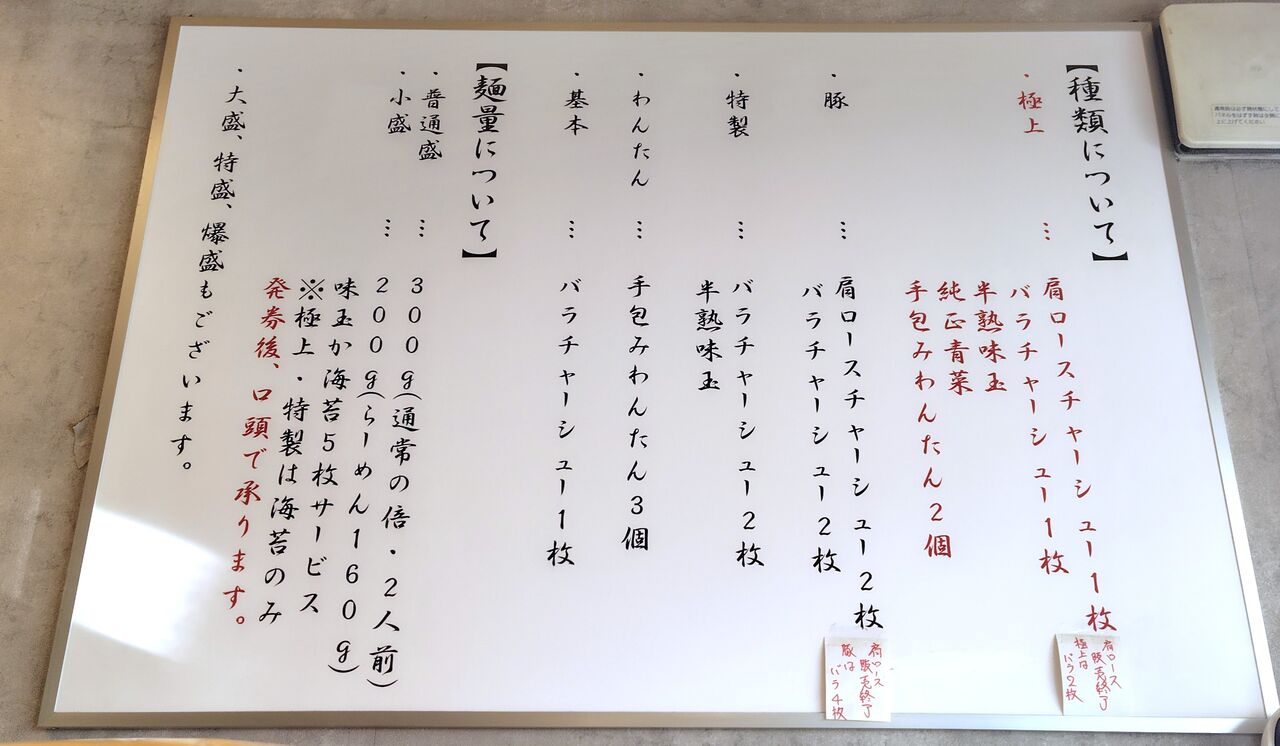 【種類について】
・極上 … 肩ロースチャーシュー1枚
バラチャーシュー1枚
半熟味玉
純正青菜
手包みわんたん2個
・豚 … 肩ロースチャーシュー2枚
バラチャーシュー2枚
・特製 … バラチャーシュー2枚
半熟味玉
・わんたん … 手包みわんたん3個
・基本 … バラチャーシュー1枚
【麺量について】
・普通盛 … 300g(通常の倍・2人前)
・小盛 … 200g(らーめん160g)
味玉か海苔5枚サービス
※極上・特製は海苔のみ
発券後、口頭で承ります。
・大盛、特盛、爆盛もございます。
肩ロース
販売終了
極上は
バラ2枚
肩ロース
販売終了
豚は
バラ4枚